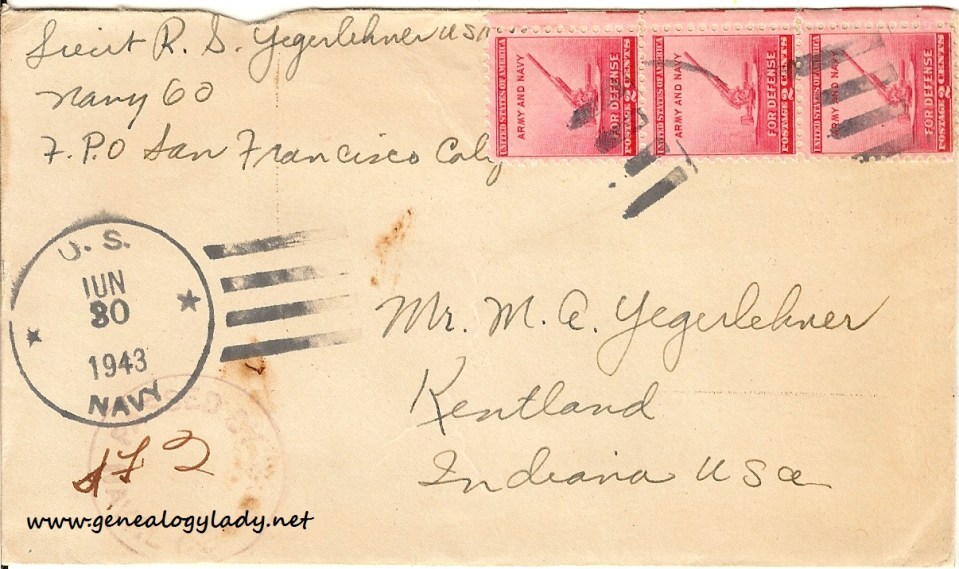 Lieut R. S. Yegerlehner USNR
Navy 60
F.P.O San Francisco Calif
UNITED STATES OF AMERICA
ARMY AND NAVY
FOR DEFENSE
POSTAGE 2 CENTS
UNITED STATES OF AMERICA
ARMY AND NAVY
FOR DEFENSE
POSTAGE 2 CENTS
UNITED STATES OF AMERICA
ARMY AND NAVY
FOR DEFENSE
POSTAGE 2 CENTS
U. S.
JUN
30
1943
NAVY
Mr. M. A. Yegerlehner
Kentland
Indiana USA
www.genealogylady.net